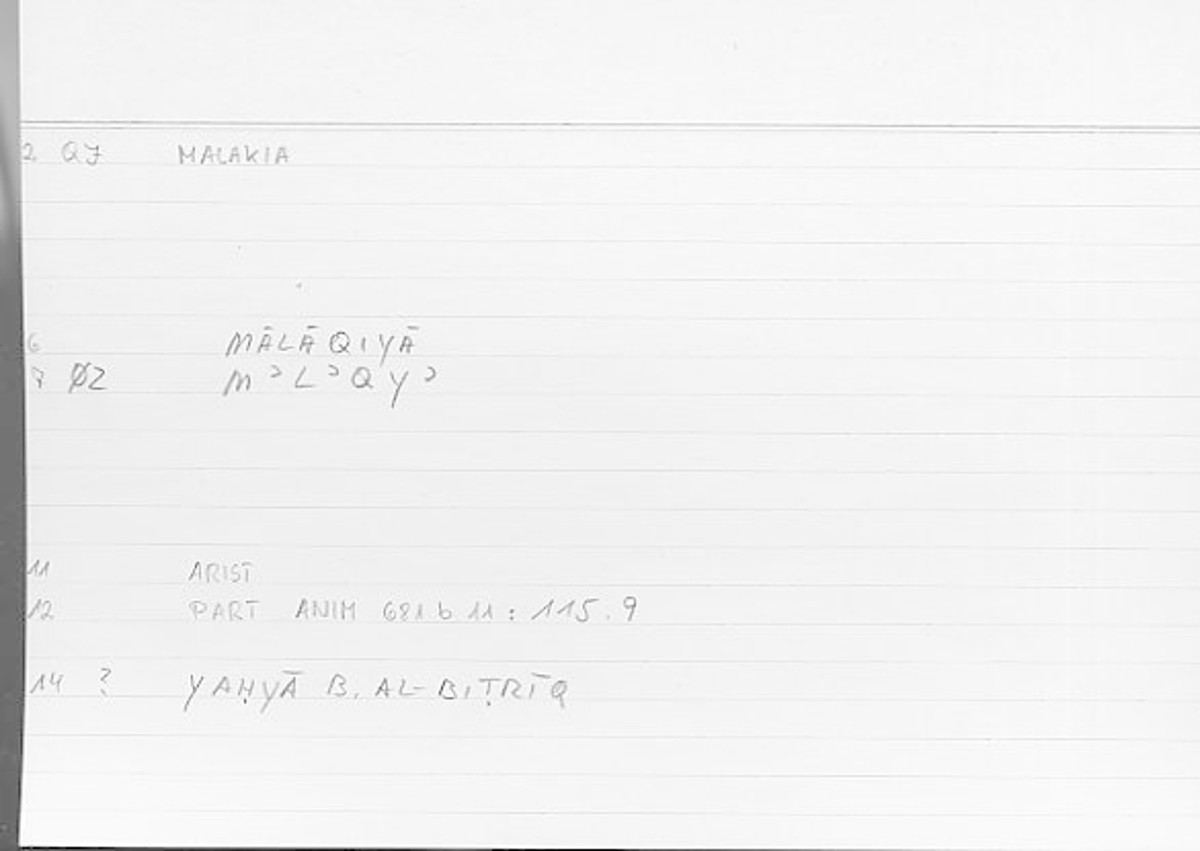 2 QJ MALAKIA
6 MĀLĀQIYĀ
7 ØZ MʾLʾQYʾ
11 ARIST
12 PART ANIM 681b11 : 115.9
14 ? YAḤYĀ B. AL-BIṬRĪQ